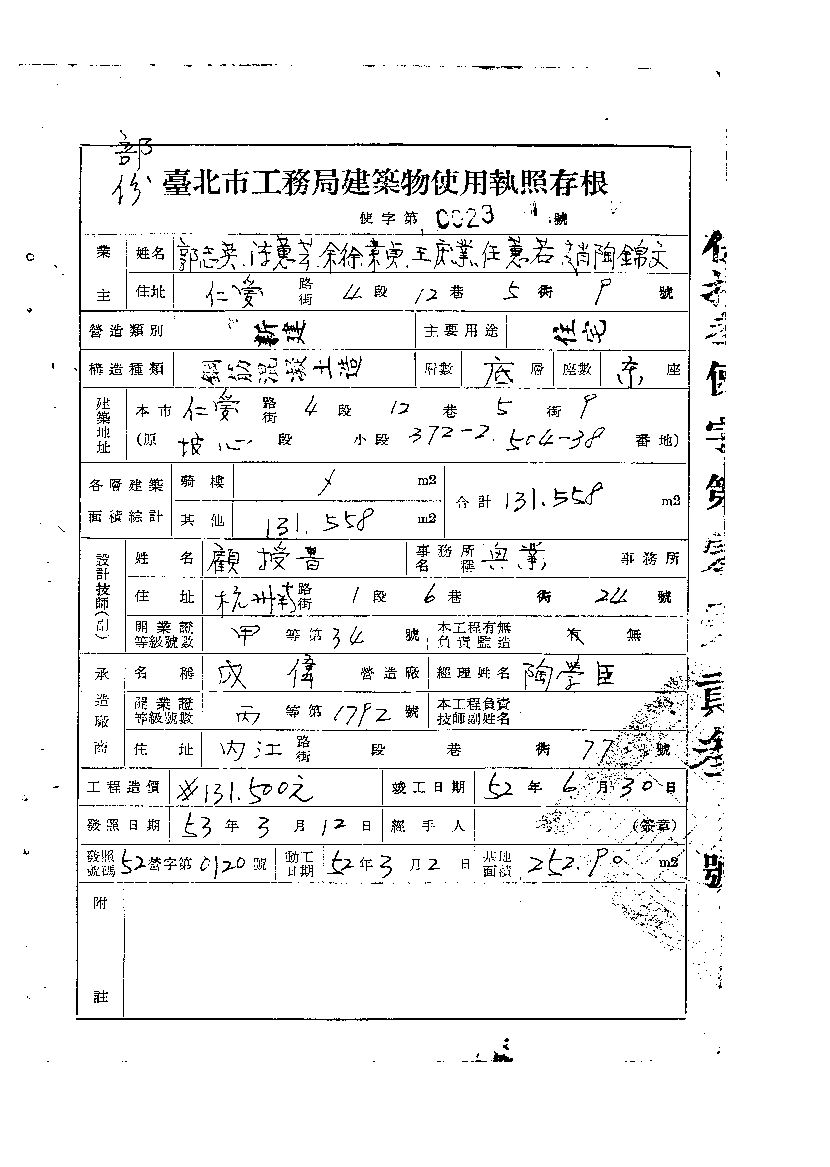 部份
臺北市工務局建築物使用執照存根
使字第 0023 號
業主 姓名 郭志英、
住址 仁愛 路街 4 段 12 巷 5 街 9 號
營造類別 新建 主要用途 住宅
構造種類 鋼筋混凝土造 層數 底 層 座數 座
建築地址 本市 仁愛 路街 4 段 12 巷 5 街 9
(原 坡心 段 小段 372-2. 504-38 番地)
各層建築面積綜計 騎樓 m2 合計 131.558 m2
其他 131.558 m2
設計技師(副) 姓名 顧授書 事務所名稱 興業 事務所
住址 杭州南 路街 1 段 6 巷 街 24 號
開業證等級號數 甲 等第 34 號 本工程有無負責監造 有 無
承造廠商 名稱 成偉 營造廠 經理姓名 陶學臣
開業證等級號數 丙 等第 1792 號 本工程負責技師副姓名
住址 內江 路街 段 巷 街 77 號
工程造價 131.500元 竣工日期 52 年 6 月 30 日
發照日期 53 年 3 月 12 日 經手人 (簽章)
發照號碼 52 營字第 0120 號 動工日期 52 年 3 月 2 日 基地面積 252.90 m2
附註